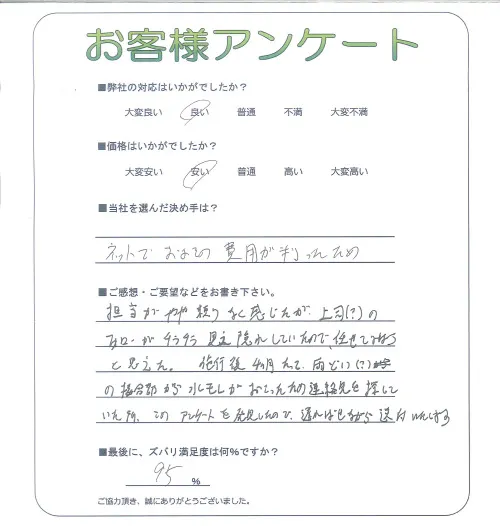 お客様アンケート
■弊社の対応はいかがでしたか?
大変良い 良い 普通 不満 大変不満
■価格はいかがでしたか?
大変安い 安い 普通 高い 大変高い
■当社を選んだ決め手は?
ネットで およその 費用が判ったため
■ご感想・ご要望などをお書き下さい。
担当が やや 頼りなく感じたが、上司(?)の
フォローが チラチラ 見え 隠れしていたので、任せてみよう
と思えた。 施行後 4ヶ月たって、雨どい(?)
の接合部から 水モレがおこったため連絡先を探して
いた所、このアンケートを発見したので、遅ればせながら 送付いたします
■最後に、ズバリ満足度は何%ですか?
95 %
ご協力頂き、誠にありがとうございました。